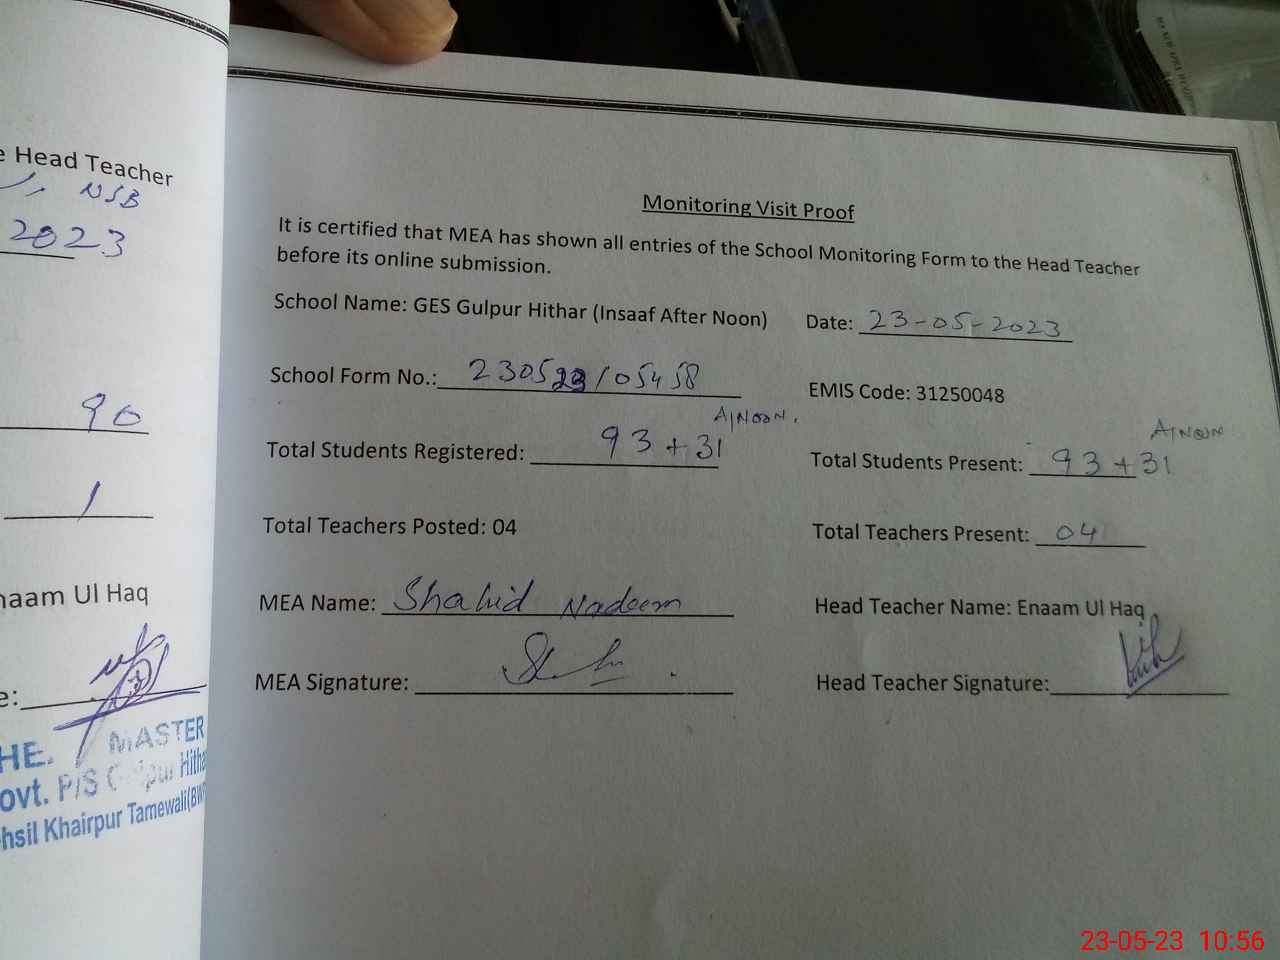 e Head Teacher
NSB
2023
90
1
naam Ul Haq
e:
HE. MASTER
ovt. P/S Gulpur Hitha
hsil Khairpur Tamewali(BW
Monitoring Visit Proof
It is certified that MEA has shown all entries of the School Monitoring Form to the Head Teacher
before its online submission.
School Name: GES Gulpur Hithar (Insaaf After Noon) Date: 23-05-2023
School Form No.: 230523/05458 EMIS Code: 31250048
A/NOON. A/NOON
Total Students Registered: 93 + 31 Total Students Present: 93 + 31
Total Teachers Posted: 04 Total Teachers Present: 04
MEA Name: Shahid Nadeem Head Teacher Name: Enaam Ul Haq
MEA Signature: Head Teacher Signature:
23-05-23 10:56